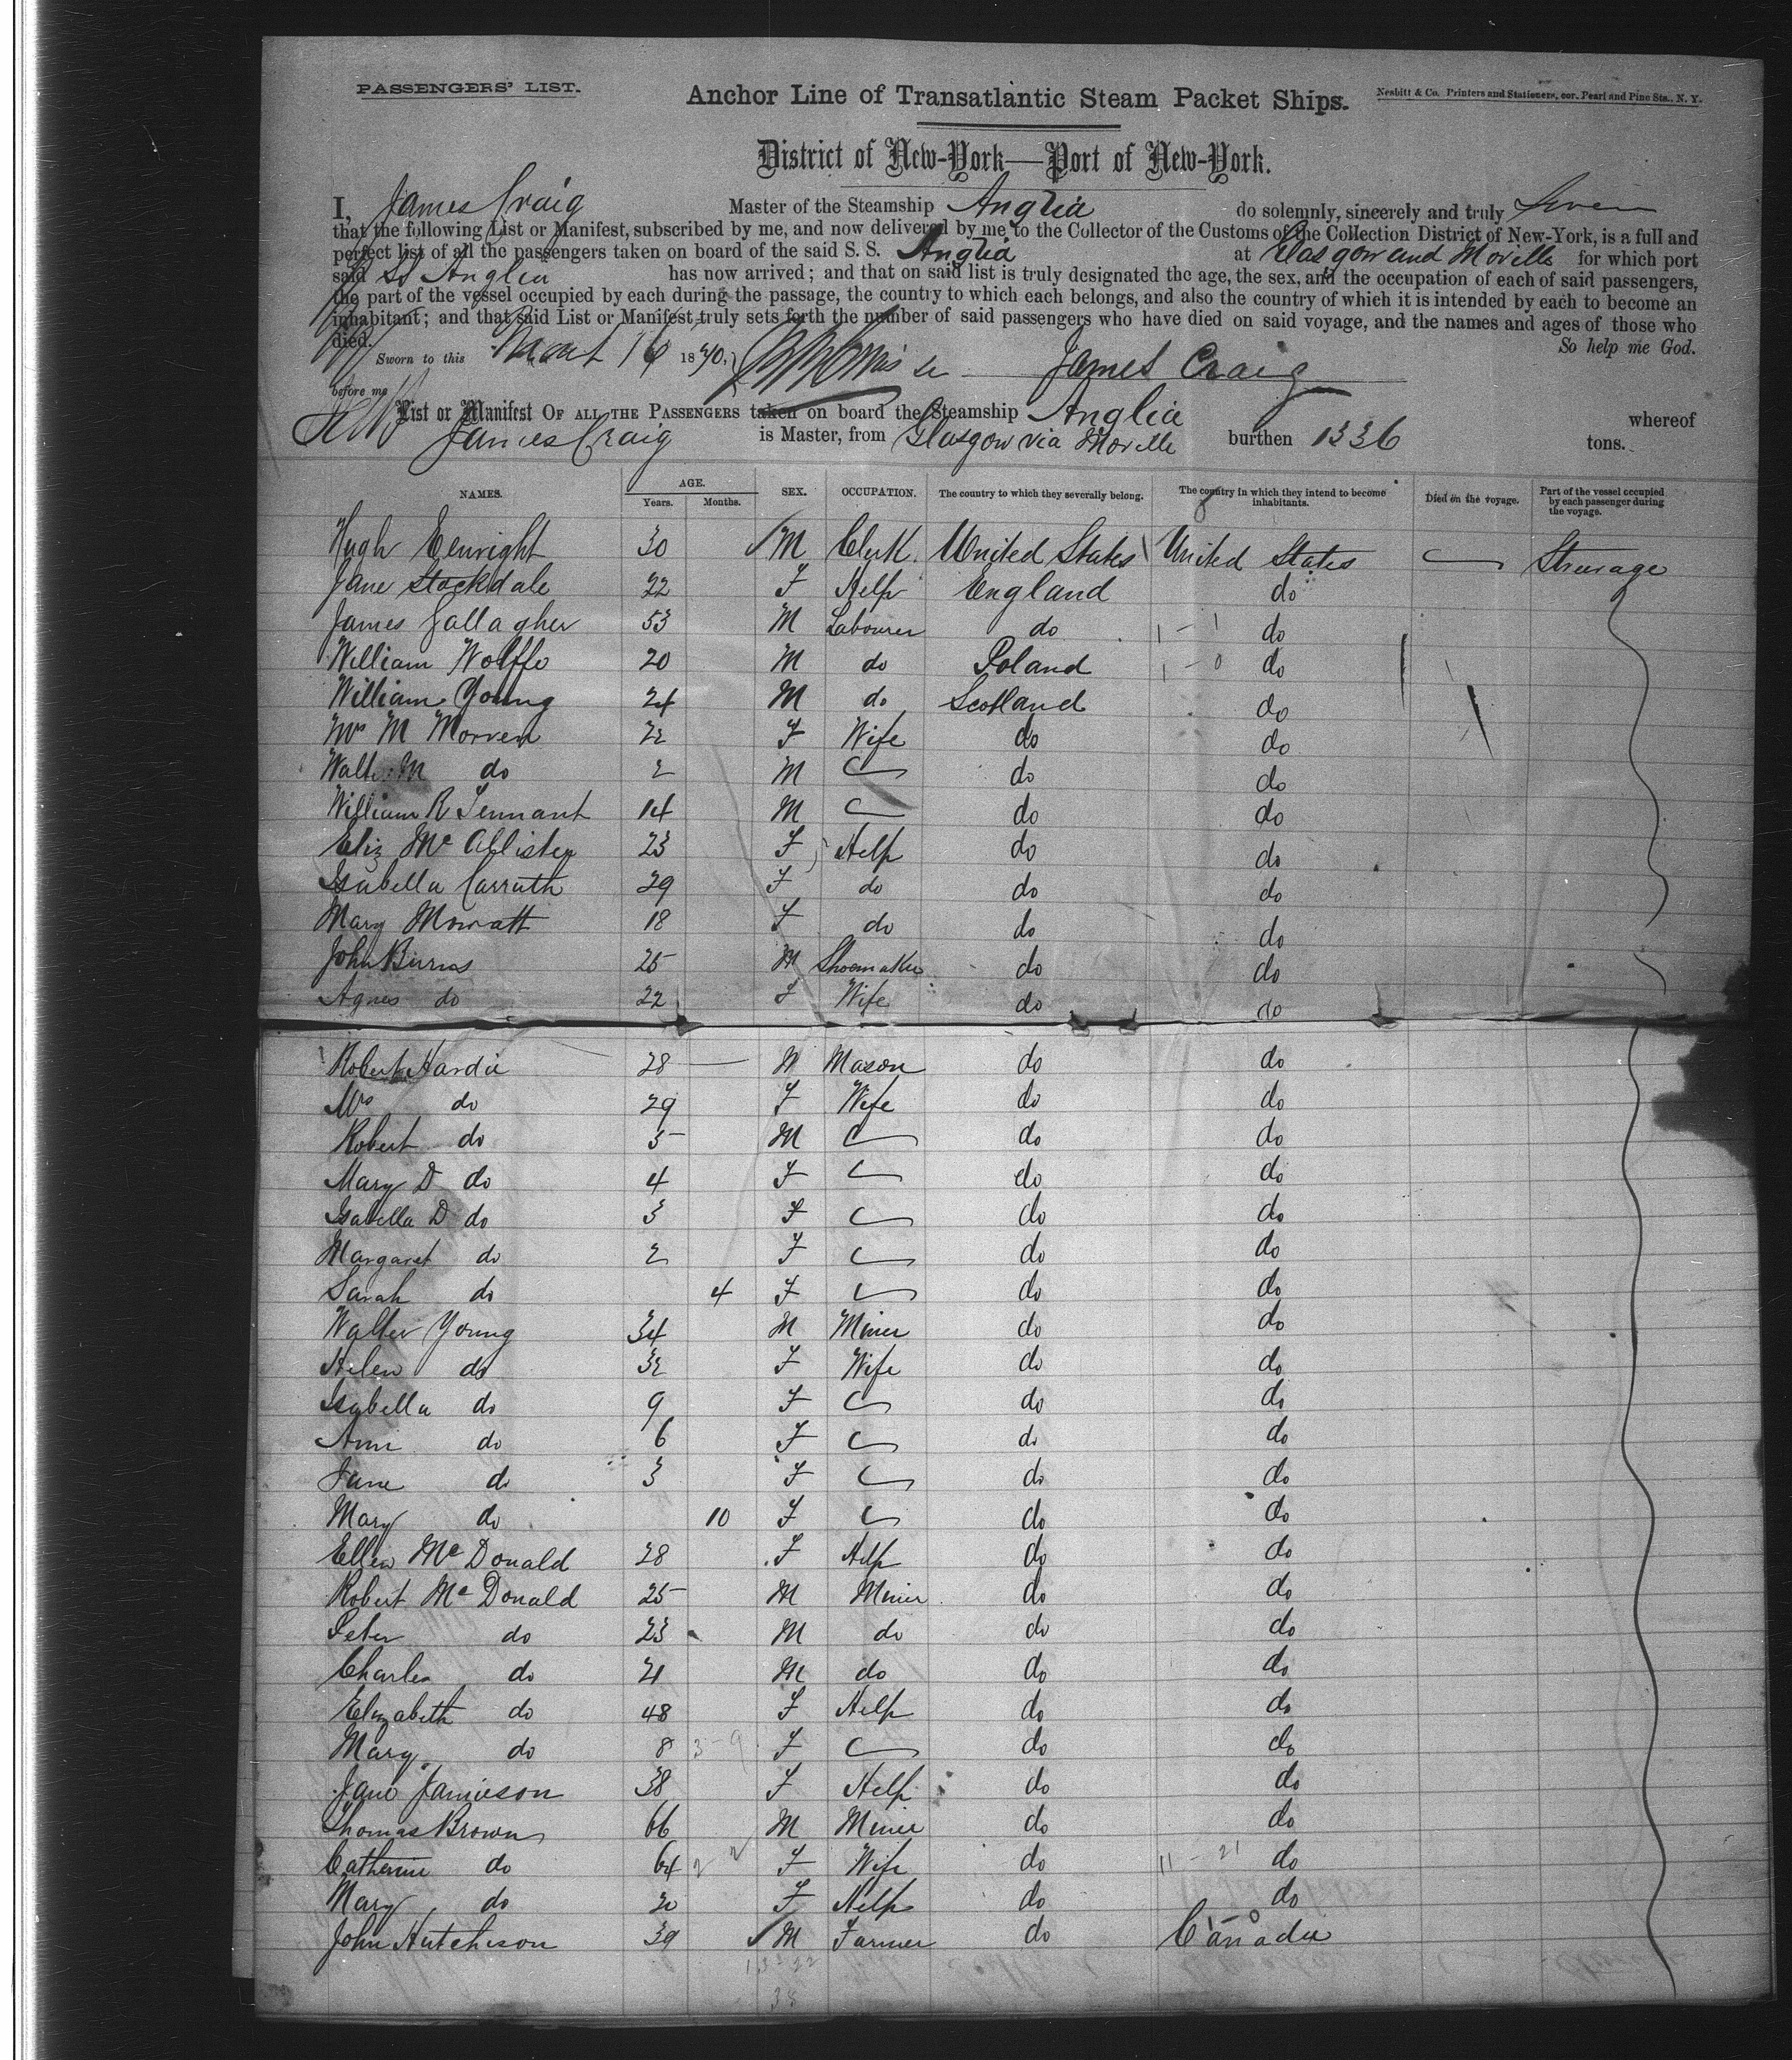 PASSENGERS' LIST.
Anchor Line of Transatlantic Steam Packet Ships.
Nesbitt & Co. Printers and Stationers, cor. Pearl and Pine Sts., N. Y.
District of New-York—Port of New-York.
I, James Craig Master of the Steamship Anglia do solemnly, sincerely and truly Swear
that the following List or Manifest, subscribed by me, and now delivered by me to the Collector of the Customs of the Collection District of New-York, is a full and
perfect list of all the passengers taken on board of the said S. S. Anglia at Glasgow and Moville for which port
said SS Anglia has now arrived; and that on said list is truly designated the age, the sex, and the occupation of each of said passengers,
the part of the vessel occupied by each during the passage, the country to which each belongs, and also the country of which it is intended by each to become an
inhabitant; and that said List or Manifest truly sets forth the number of said passengers who have died on said voyage, and the names and ages of those who
died. So help me God.
Sworn to this 16 1870. James Craig
before me
List or Manifest OF ALL THE PASSENGERS taken on board the Steamship Anglia whereof
James Craig is Master, from Glasgow via Moville burthen 1336 tons.
NAMES. AGE. Years. Months. SEX. OCCUPATION. The country to which they severally belong. The country in which they intend to become inhabitants. Died on the voyage. Part of the vessel occupied by each passenger during the voyage.
Hugh Enright 30 M Clerk United States United States Steerage
Jane Stockdale 22 F Help England do
James Gallagher 53 M Labourer do 1 - 1 do
William Wolffe 20 M do Poland 1 - 0 do
William Young 24 M do Scotland do
Mrs M Morven 22 F Wife do do
Walter M do 2 M do do
William R Tennant 14 M do do
Eliz McAllister 23 F Help do do
Isabella Carruth 29 F do do do
Mary Mowatt 18 F do do do
John Burns 25 M Shoemaker do do
Agnes do 22 F Wife do do
Robert Hardie 28 M Mason do do
Mrs do 29 F Wife do do
Robert do 5 M do do
Mary D do 4 F do do
Isabella D do 3 F do do
Margaret do 2 F do do
Sarah do 4 F do do
Walter Young 34 M Miner do do
Helen do 32 F Wife do do
Isabella do 9 F do do
Ann do 6 F do do
Jane do 3 F do do
Mary do 10 F do do
Ellen McDonald 28 F Help do do
Robert McDonald 25 M Miner do do
Peter do 23 M do do do
Charles do 21 M do do do
Elizabeth do 48 F Help do do
Mary do 8 3-9 F do do
Jane Jamieson 38 F Help do do
Thomas Brown 66 M Miner do do
Catherine do 64 F Wife do 11 - 21 do
Mary do 20 F Help do do
John Hutchison 39 M Farmer do Canada
38